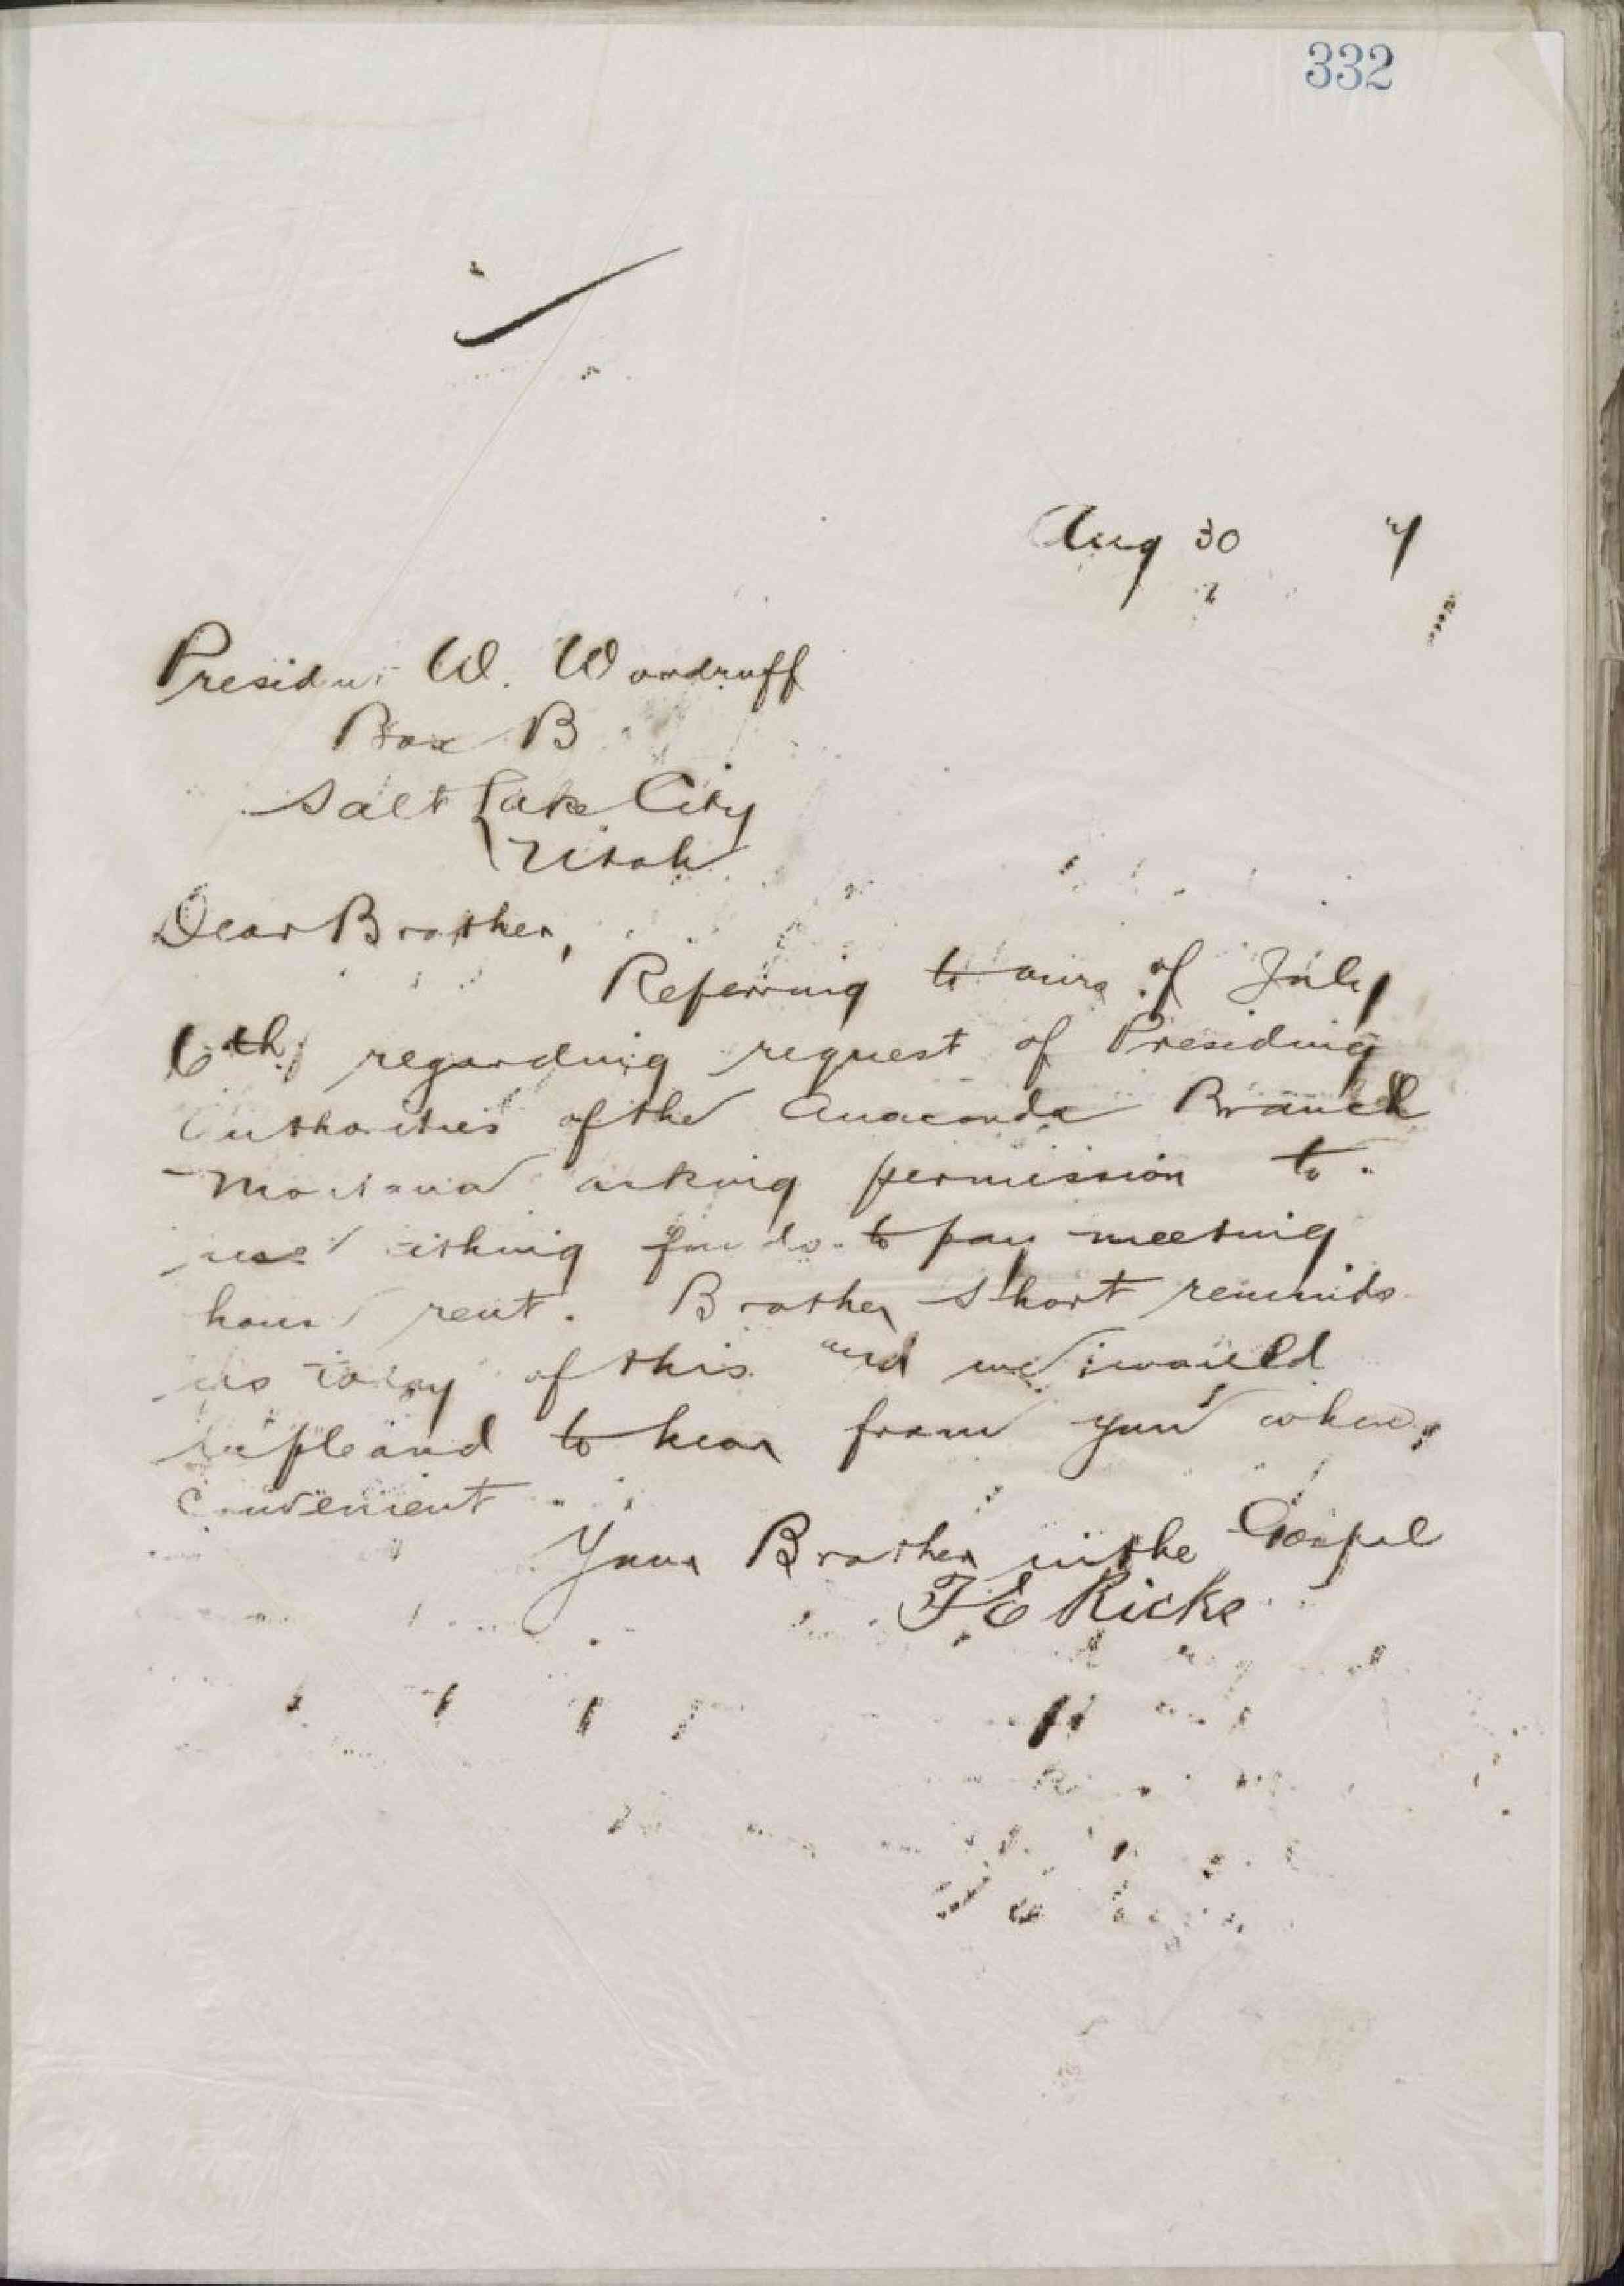 332
Aug 30 7
President W. Woodruff
Box B
Salt Lake City
Utah
Dear Brother,
Referring to ours of July
6th, regarding request of Presiding
Authorities of the Anaconda Branch
Montana asking permission to
use tithing funds to pay meeting
house rent. Brother Short reminds
us today of this and we would
be pleased to hear from you when
convenient
Your Brother in the Gospel
T E Ricks